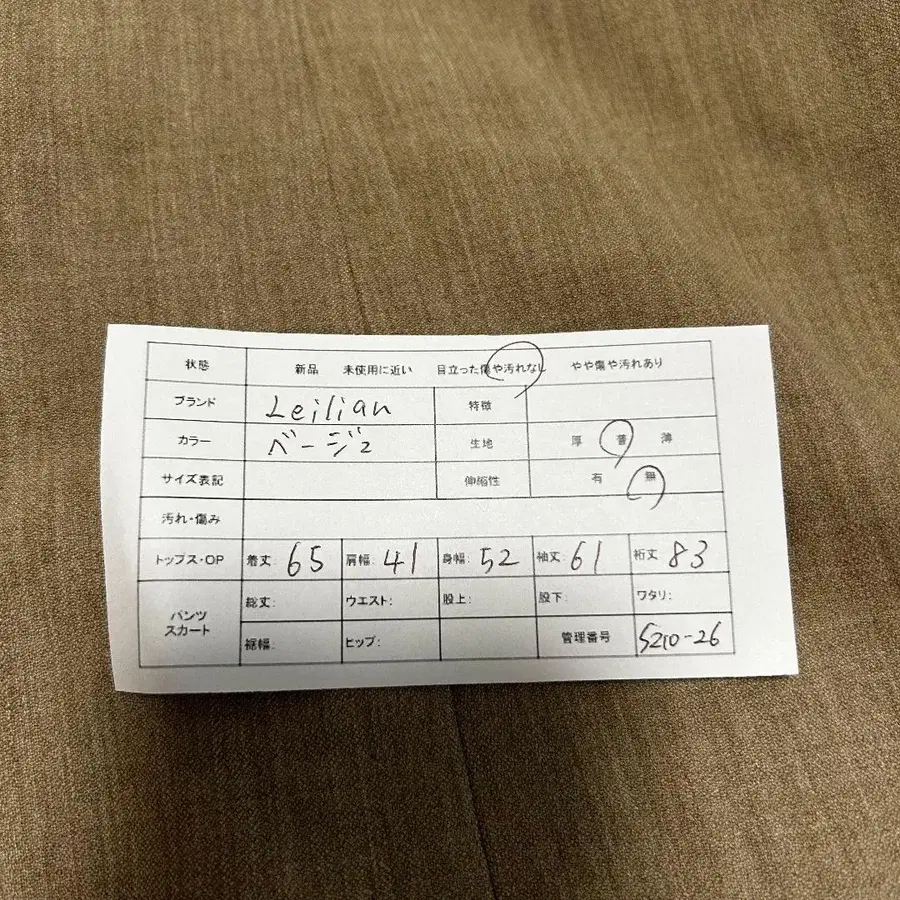 状態 新品 未使用に近い 目立った傷や汚れなし やや傷や汚れあり
ブランド Leilian 特徴
カラー ベージュ 生地 厚 普 薄
サイズ表記 伸縮性 有 無
汚れ・傷み
トップス・OP 着丈: 65 肩幅: 41 身幅: 52 袖丈: 61 裄丈: 83
パンツ スカート 総丈: ウエスト: 股上: 股下: ワタリ:
裾幅: ヒップ: 管理番号 5210-26